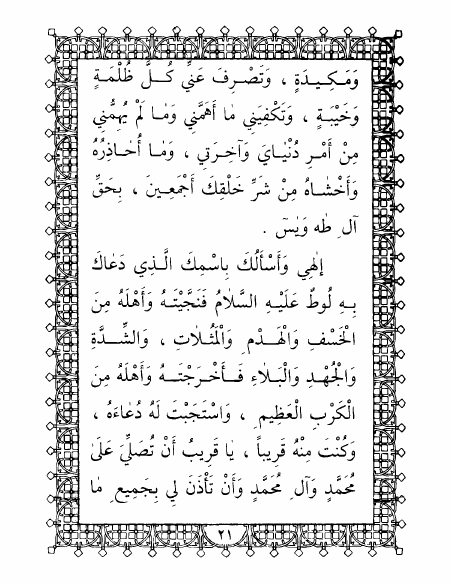 وَمَكِيدَةٍ ، وَتَصْرِفَ عَنِّي كُلَّ ظُلْمَةٍ
وَخَيْبَةٍ ، وَتَكْفِيَنِي مَا أَهَمَّنِي وَمَا لَمْ يُهِمُّنِي
مِنْ أَمْرِ دُنْيَايَ وَآخِرَتِي ، وَمَا أُحَاذِرُهُ
وَأَخْشَاهُ مِنْ شَرِّ خَلْقِكَ أَجْمَعِينَ ، بِحَقِّ
آلِ طٰه وَيٰسٓ .
إِلٰهِي وَأَسْأَلُكَ بِاسْمِكَ الَّذِي دَعَاكَ
بِهِ لُوطٌ عَلَيْهِ السَّلَامُ فَنَجَّيْتَهُ وَأَهْلَهُ مِنَ
الْخَسْفِ وَالْهَدْمِ وَالْمَثُلَاتِ ، وَالشِّدَّةِ
وَالْجُهْدِ وَالْبَلَاءِ فَأَخْرَجْتَهُ وَأَهْلَهُ مِنَ
الْكَرْبِ الْعَظِيمِ ، وَاسْتَجَبْتَ لَهُ دُعَاءَهُ ،
وَكُنْتَ مِنْهُ قَرِيباً ، يَا قَرِيبُ أَنْ تُصَلِّيَ عَلَىٰ
مُحَمَّدٍ وَآلِ مُحَمَّدٍ وَأَنْ تَأْذَنَ لِي بِجَمِيعِ مَا
٢١